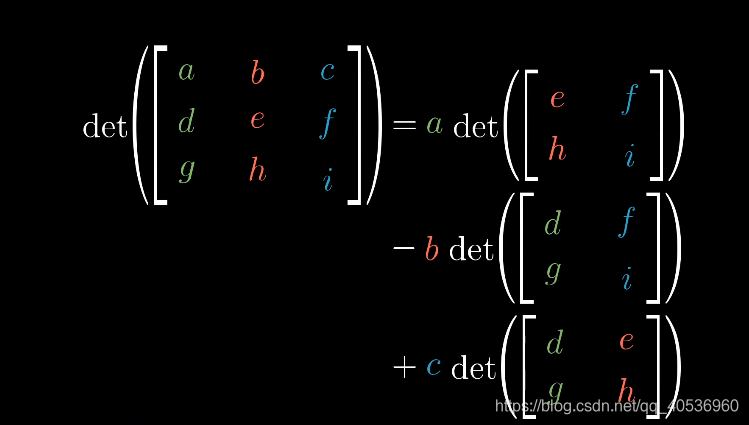 det([a b c
d e f
g h i]) = a det([e f
h i])
− b det([d f
g i])
+ c det([d e
g h])
https://blog.csdn.net/qq_40536960